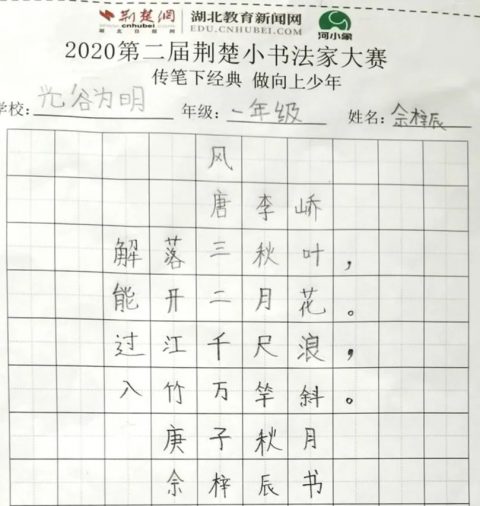 荆楚網
www.cnhubei.com
湖北日报网
湖北教育新闻网
EDU.CNHUBEI.COM
河小象
2020第二届荆楚小书法家大赛
传笔下经典 做向上少年
学校: 光谷为明 年级: 一年级 姓名: 佘梓辰
风
唐李峤
解落三秋叶，
能开二月花。
过江千尺浪，
入竹万竿斜。
庚子秋月
佘梓辰书